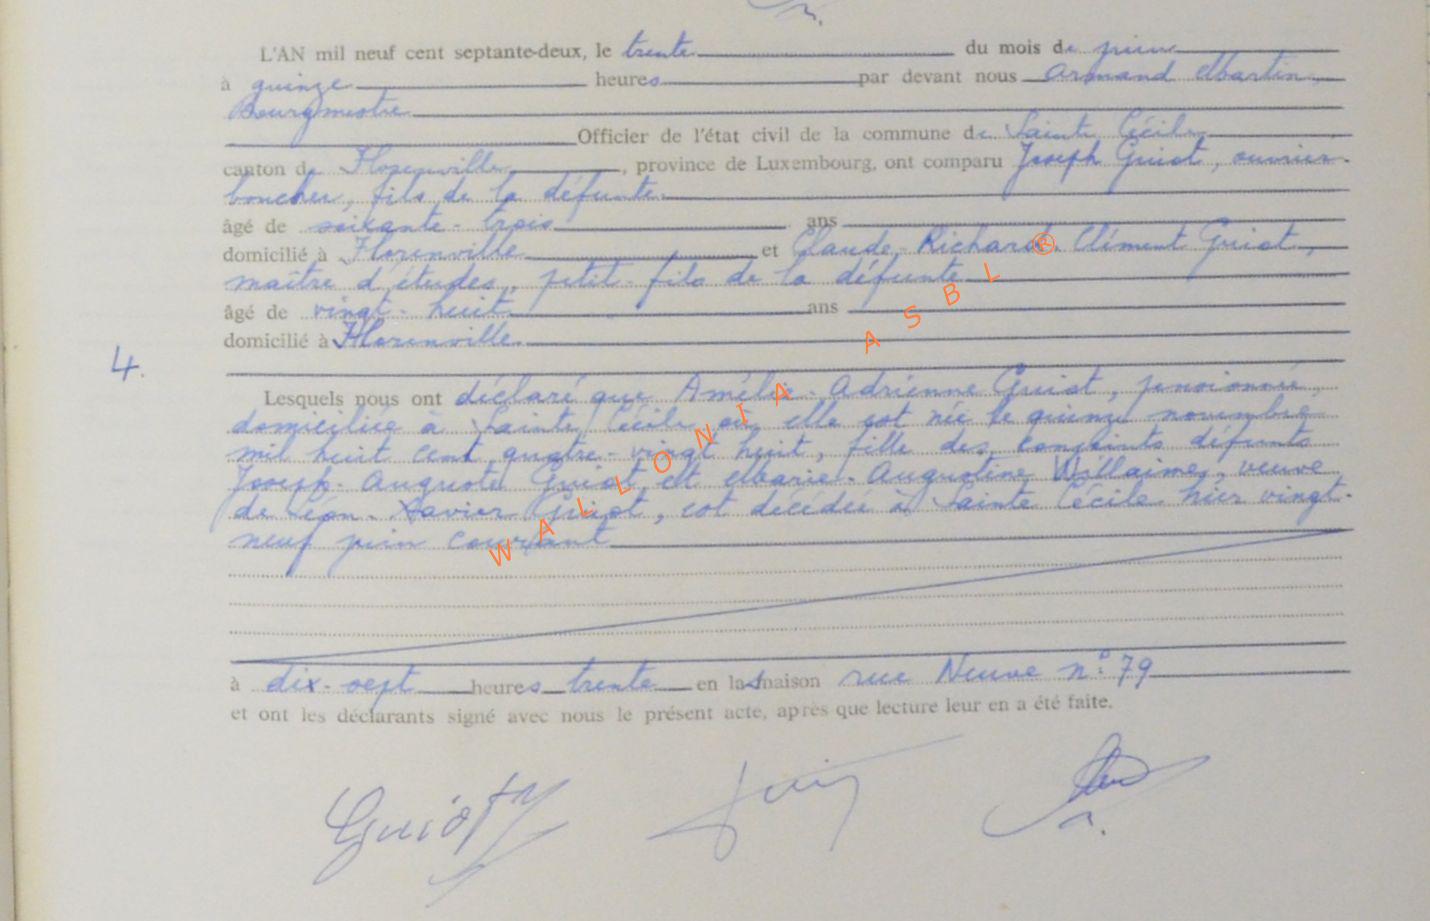 L'AN mil neuf cent septante-deux, le trente du mois de juin
à quinze heures par devant nous Armand Martin,
Bourgmestre
Officier de l'état civil de la commune de Sainte Cécile
canton de Florenville, province de Luxembourg, ont comparu Joseph Guiot, ouvrier-
boucher, fils de la défunte
âgé de soixante-trois ans
domicilié à Florenville et Claude-Richard Clément Guiot,
maître d'études, petit-fils de la défunte
âgé de vingt-huit ans
domicilié à Florenville
4.
Lesquels nous ont déclaré que Amélie-Adrienne Guiot, pensionnée,
domiciliée à Sainte Cécile où elle est née le quinze novembre
mil huit cent quatre-vingt huit, fille des conjoints défunts
Joseph-Auguste Guiot et Marie-Augustine Willaime, veuve
de Léon-Xavier Guiot, est décédée à Sainte Cécile hier vingt-
neuf juin courant
à dix-sept heures trente en la maison rue Neuve n° 79
et ont les déclarants signé avec nous le présent acte, après que lecture leur en a été faite.
Guiot
WALLONIA ASBL ®